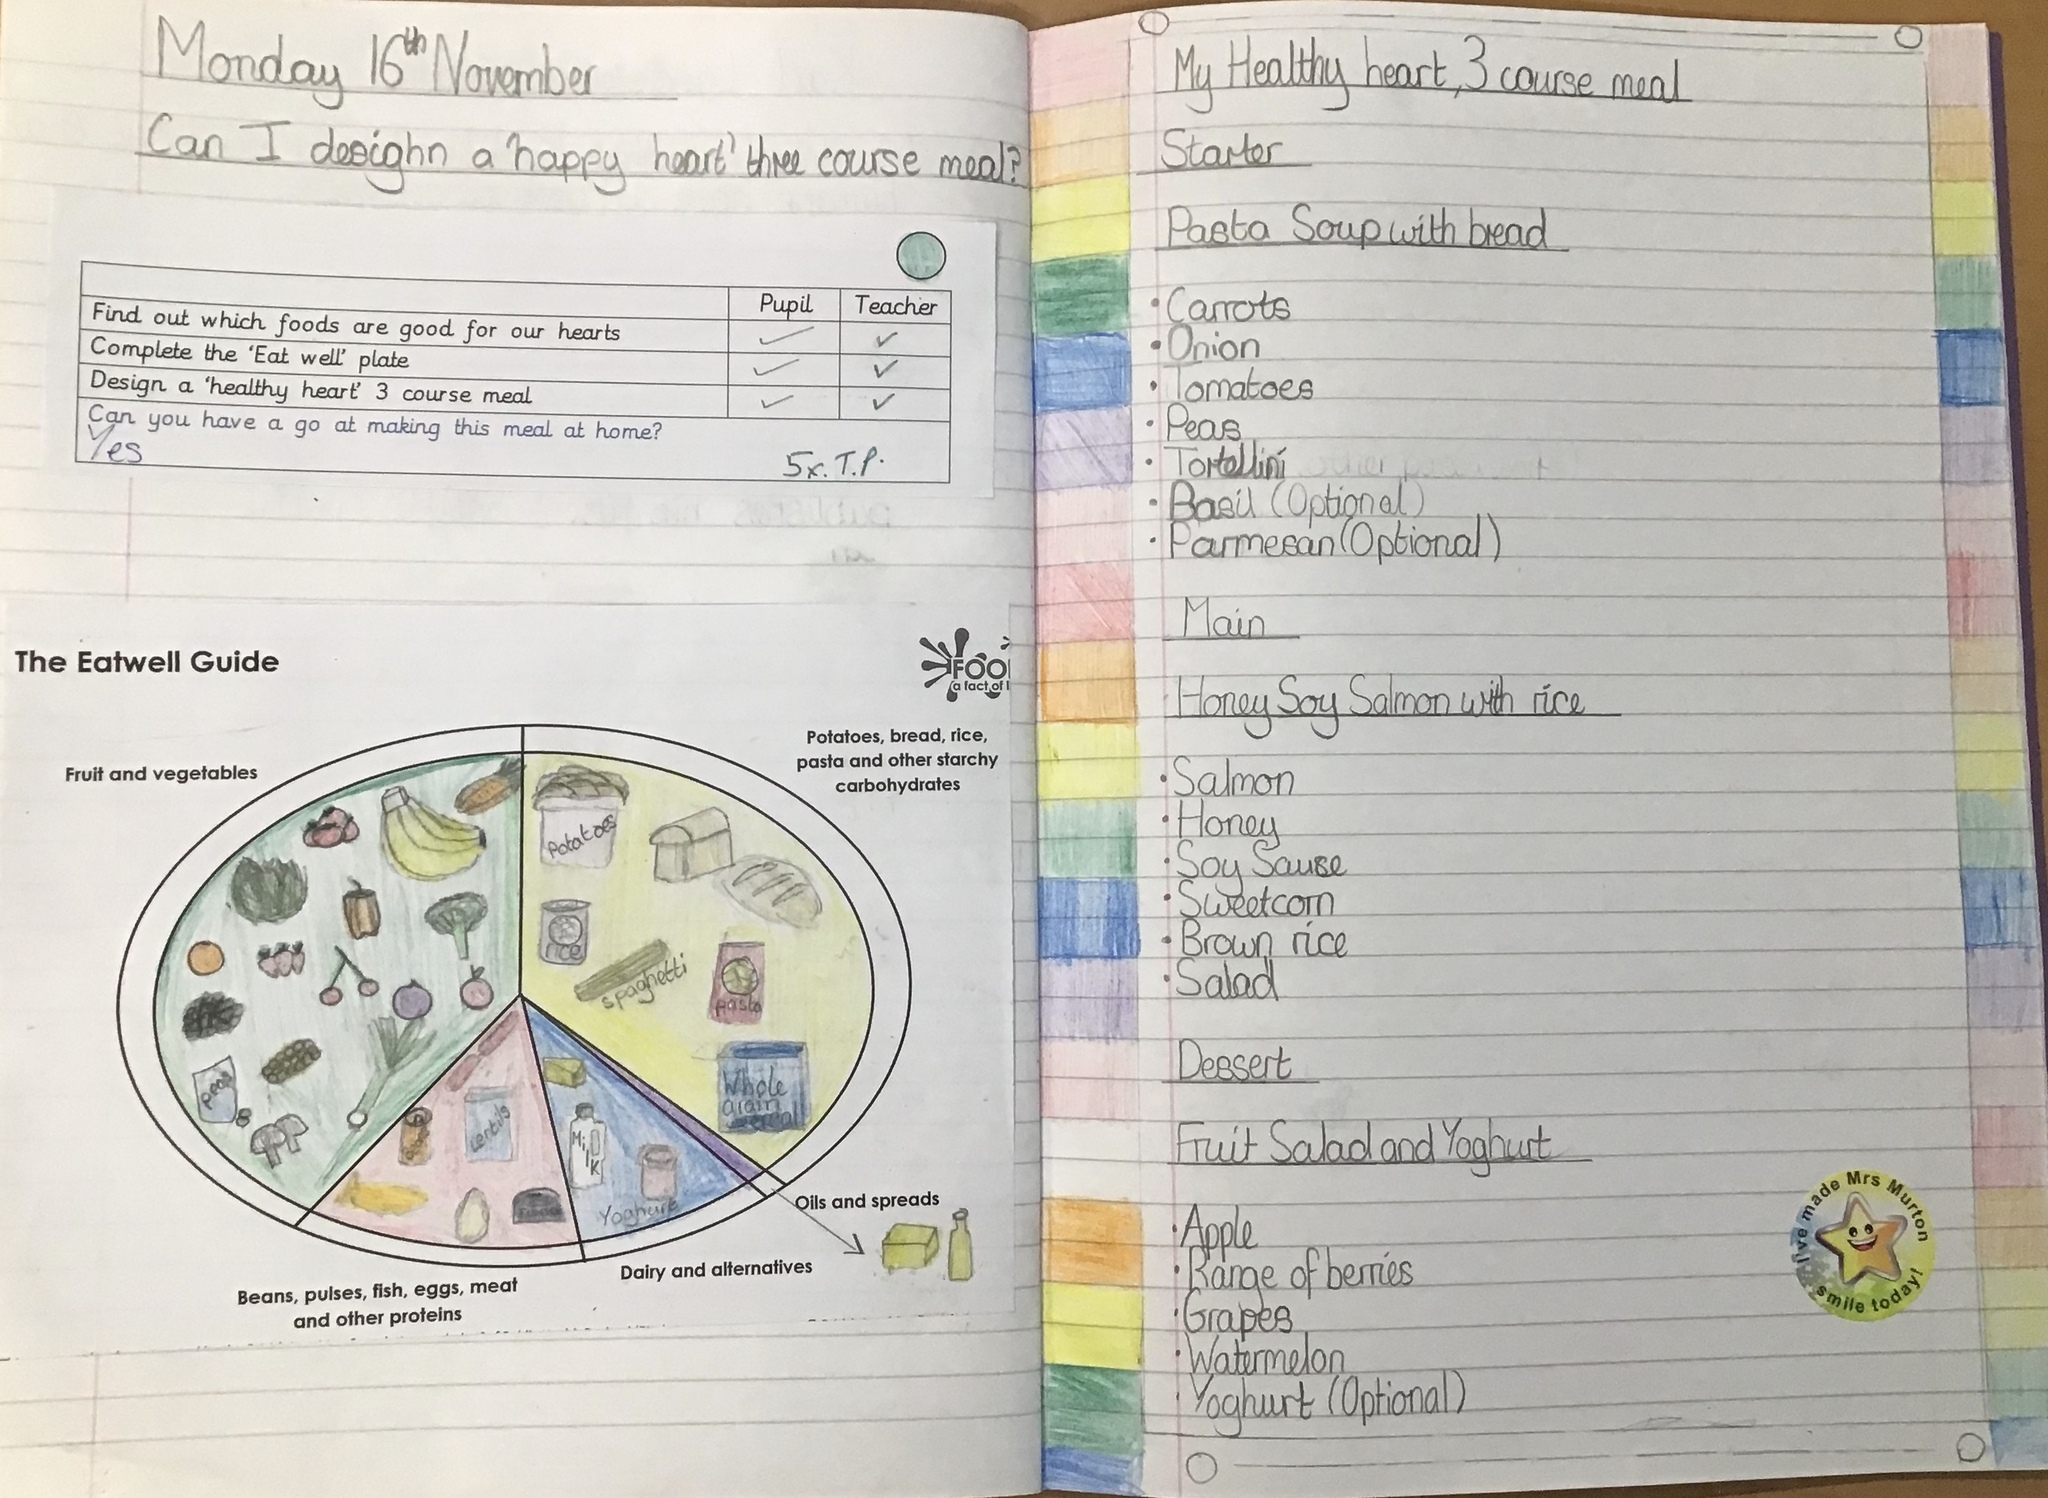 Monday 16th November
Can I desighn a 'happy heart' three course meal?
Pupil Teacher
Find out which foods are good for our hearts
Complete the 'Eat well' plate
Design a 'healthy heart' 3 course meal
Can you have a go at making this meal at home?
Yes
5x. T.P.
The Eatwell Guide
FOO
a fact of l
Fruit and vegetables
Potatoes, bread, rice,
pasta and other starchy
carbohydrates
Potatoes
rice
spaghetti
pasta
Whole
grain
cereal
peas
Lentils
Milk
Yoghurt
Oils and spreads
Dairy and alternatives
Beans, pulses, fish, eggs, meat
and other proteins
My Healthy heart, 3 course meal
Starter
Pasta Soup with bread
• Carrots
• Onion
• Tomatoes
• Peas
• Tortellini
• Basil (Optional)
• Parmesan (Optional)
Main
Honey Soy Salmon with rice
• Salmon
• Honey
• Soy Sause
• Sweetcorn
• Brown rice
• Salad
Dessert
Fruit Salad and Yoghurt
• Apple
• Range of berries
• Grapes
• Watermelon
• Yoghurt (Optional)
I've made Mrs Murton
smile today!